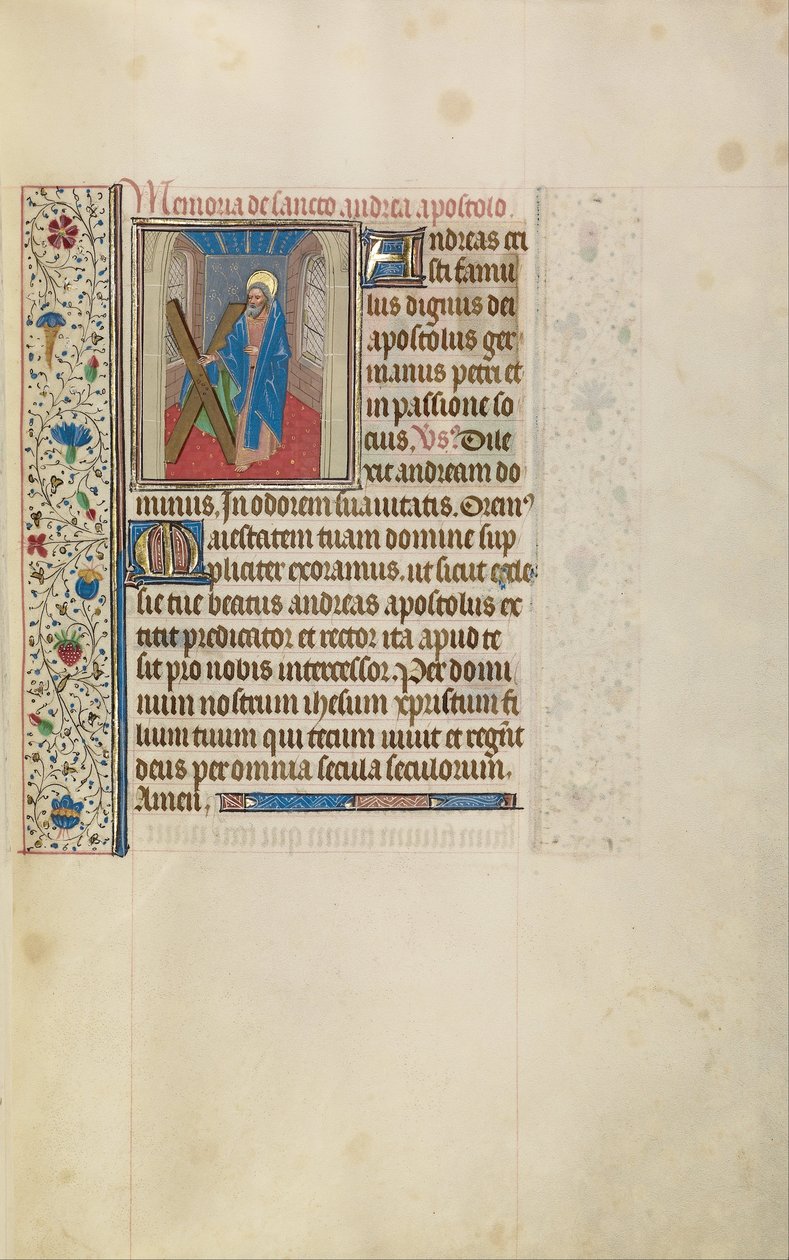 Memoria de sancto andrea apostolo.
Andreas cri
sti famu
lus dignus dei
apostolus ger
manus petri et
in passione so
cius. Vs? Dile
xit andream do
minus, In odorem suauitatis. Orem?
Maiestatem tuam domine sup
pliciter exoramus. ut sicut eccle
sie tue beatus andreas apostolus ex
titit predicator et rector ita apud te
sit pro nobis intercessor. Per domi
num nostrum ihesum xpristum fi
lium tuum qui tecum uiuit et regn̄t
deus per omnia secula seculorum.
Amen.